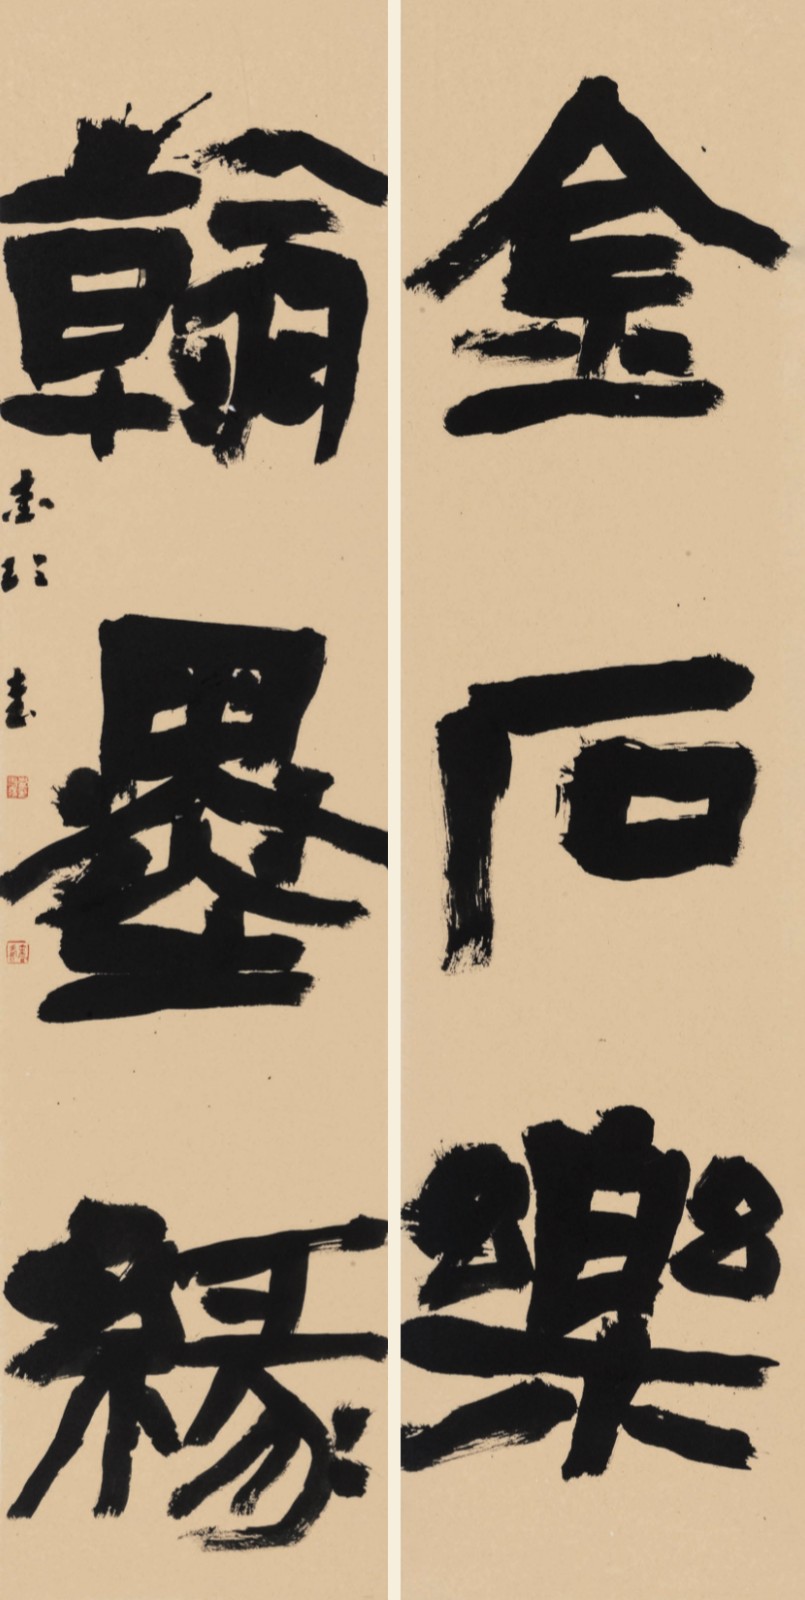 金石樂
翰墨緣